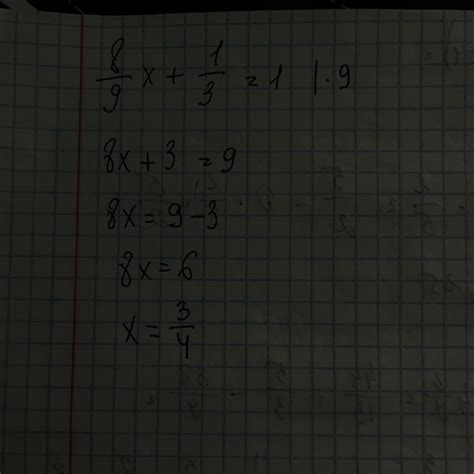 8/9 x + 1/3 = 1 | · 9
8x + 3 = 9
8x = 9 - 3
8x = 6
x = 3/4